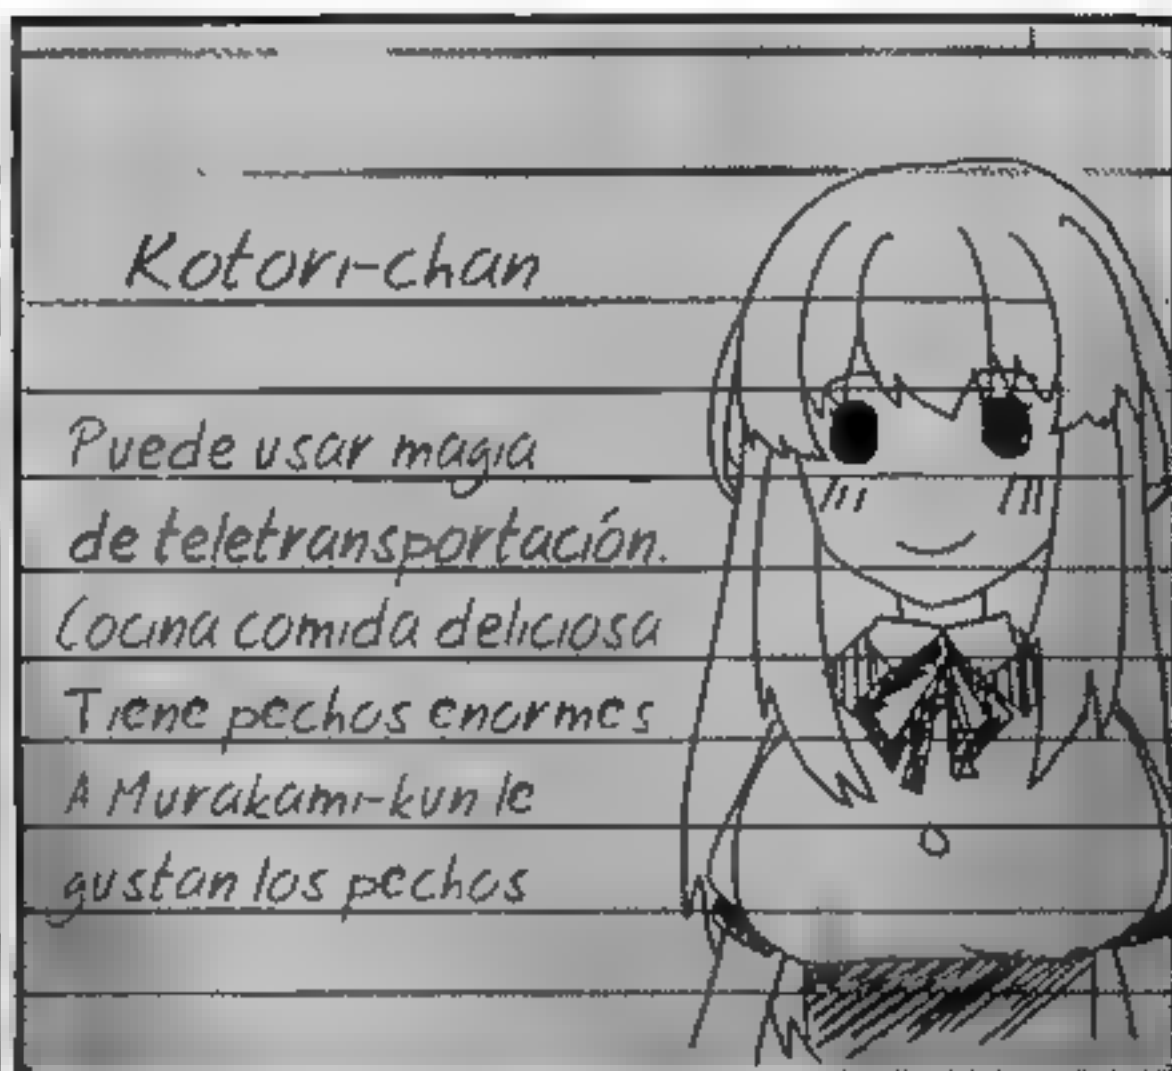 Kotori-chan
Puede usar magia
de teletransportación.
Cocina comida deliciosa
Tiene pechos enormes
A Murakami-kun le
gustan los pechos